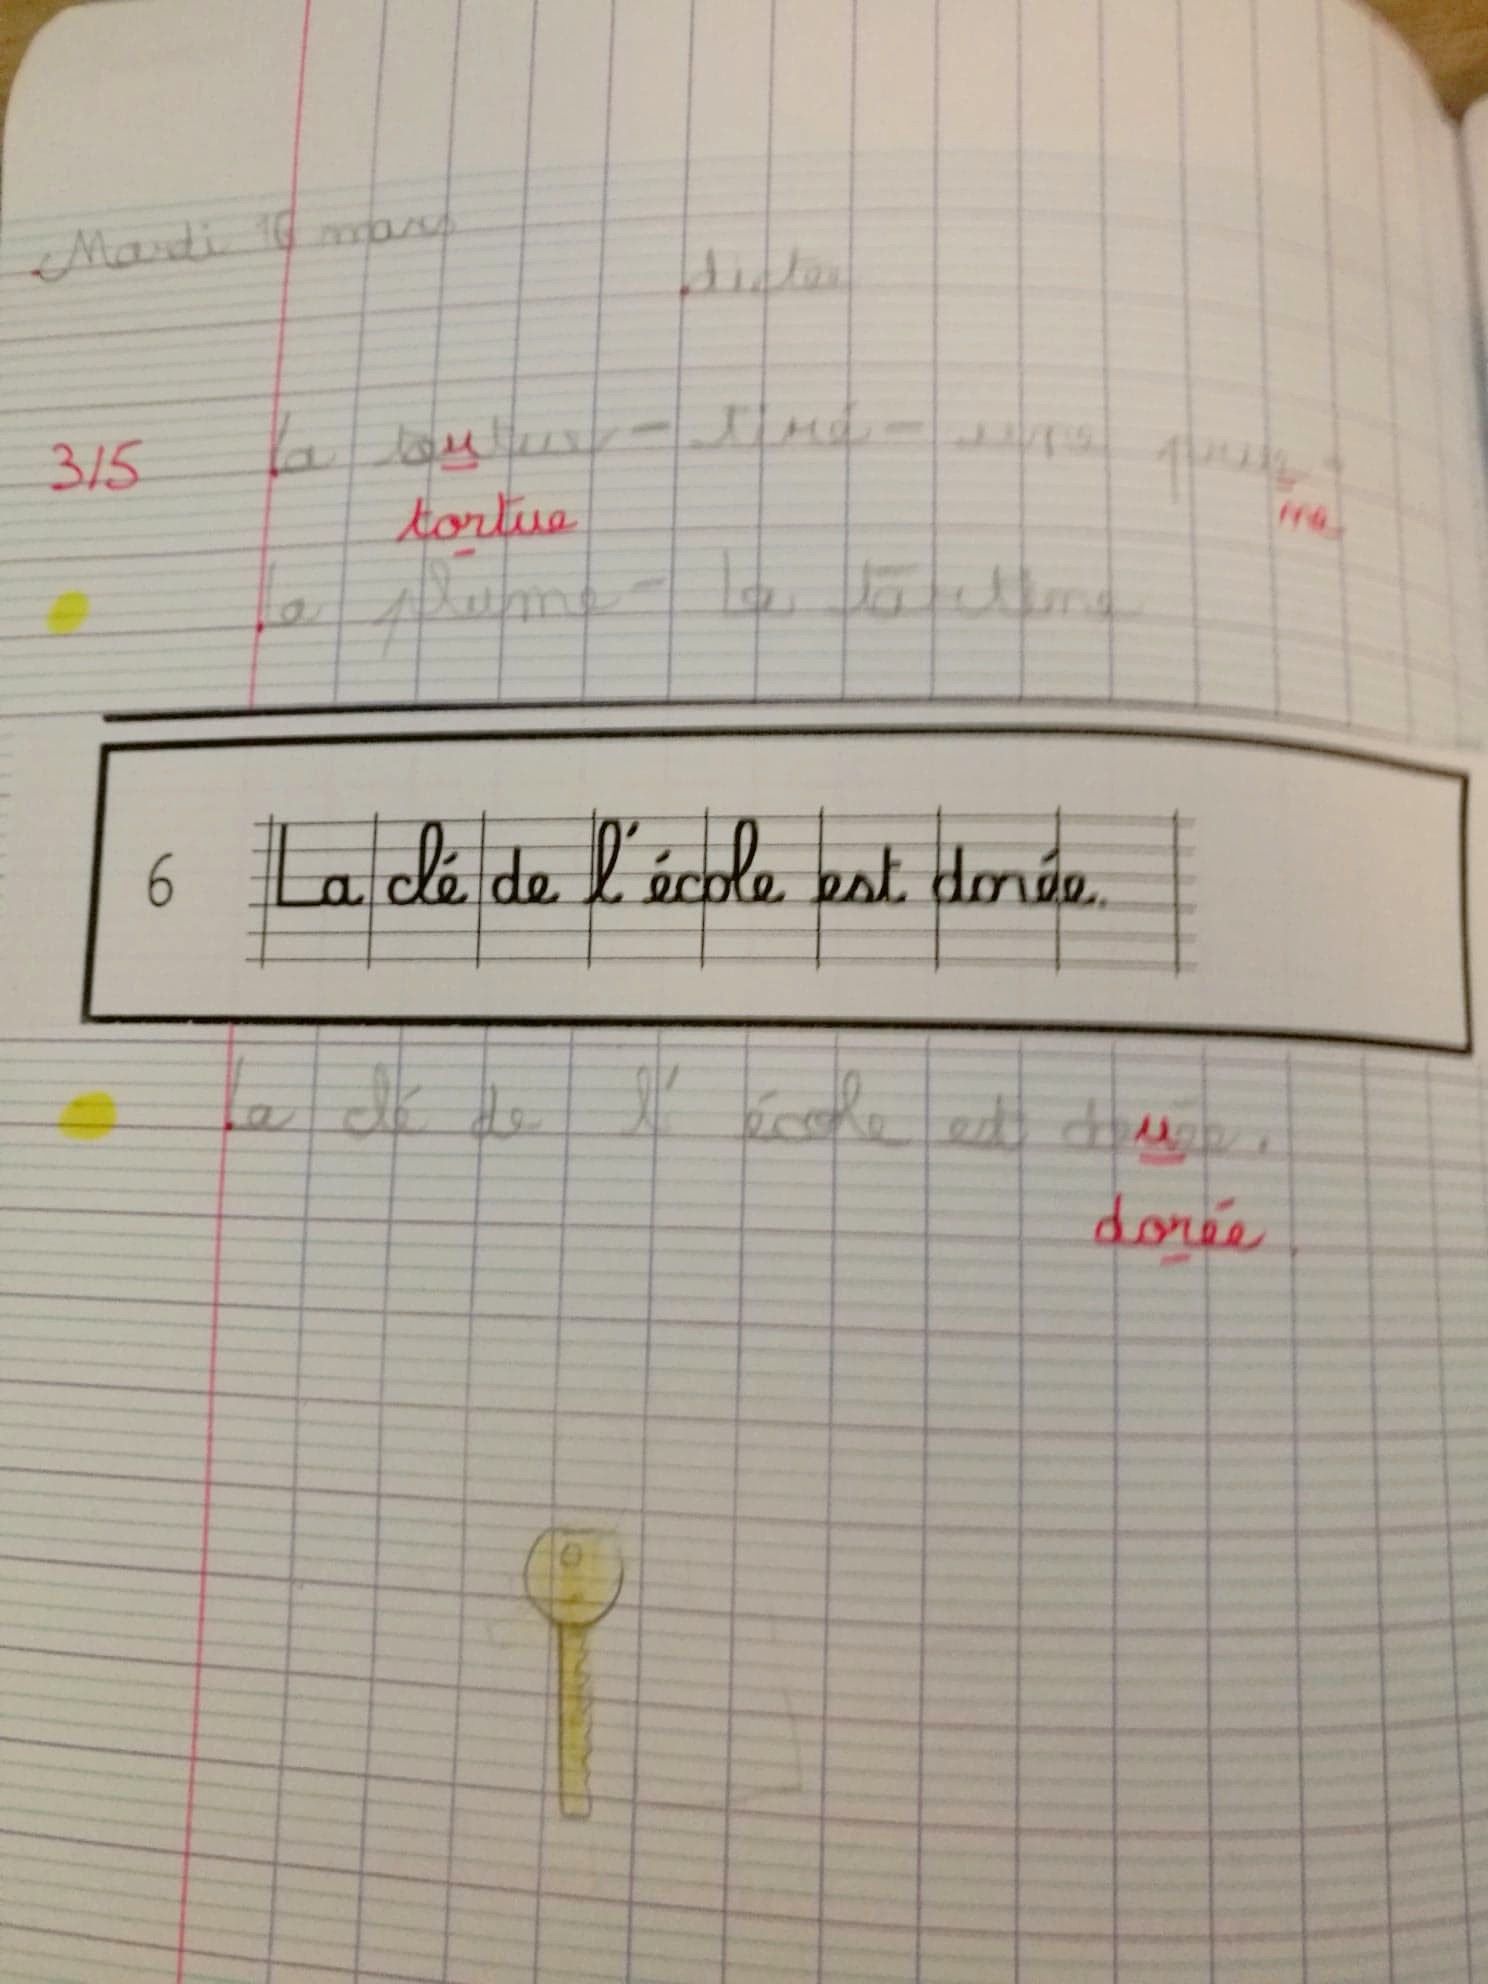 Mardi 16 mars
dictée
3/5 la - tiré - une
tortue
la plume - la
6 La clé de l'école est dorée.
la clé de l' école est
dorée